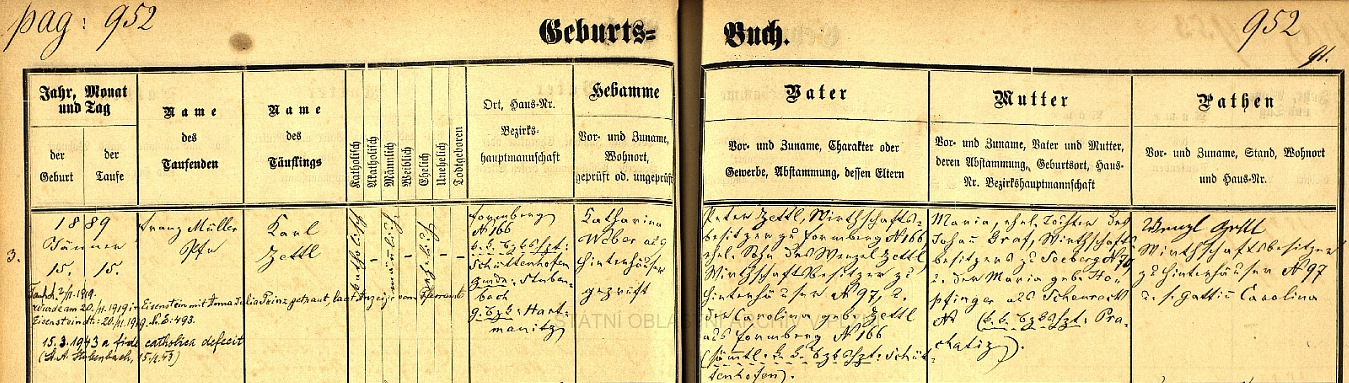 pag: 952
Geburts=
Buch.
952
91.
Jahr, Monat
und Tag
der
Geburt
der
Taufe
Name
des
Taufenden
Name
des
Täuflings
Katholisch
Akatholisch
Männlich
Weiblich
Ehelich
Unehelich
Todtgeboren
Ort, Haus-Nr.
Bezirks-
hauptmannschaft
Hebamme
Vor- und Zuname,
Wohnort,
geprüft od. ungeprüft
Vater
Vor- und Zuname, Charakter oder
Gewerbe, Abstammung, dessen Eltern
Mutter
Vor- und Zuname, Vater und Mutter,
deren Abstammung, Geburtsort, Haus-
Nr. Bezirkshauptmannschaft
Pathen
Vor- und Zuname, Stand, Wohnort
und Haus-Nr.
3.
1889
Jänner
15. 15.
Franz Müller
Karl
Zettl
katholisch
männlich
ehelich
N 166
Schüttenhofen
Stuben-
bach
Hart-
manitz
Katharina
Weber aus
Hinterhäuser
geprüft
Peter Zettl, Wirthschafts-
besitzer zu N 166
ehel. Sohn des Wenzel Zettl
Wirthschaftsbesitzer zu
Hinterhäuser N 97, u.
der Carolina geb. Zettl
aus N 166
Schüt-
tenhofen).
Maria, ehel. Tochter des
Johann Graf, Wirthschafts-
besitzers zu Seeberg
u. der Maria geb.
aus
Pra-
chatitz).
Wenzl Zettl
Wirthschaftsbesitzer
zu Hinterhäuser N 97
u. s. Gattin Carolina
wurde am 20./11. 1919 in Eisenstein mit Anna Julia Prinz getraut, laut Anzeige vom Pfarramt
Eisenstein
15.3.1943 a fide catholica defecit
STÁTNÍ OBLASTNÍ ARCHIV V PLZNI